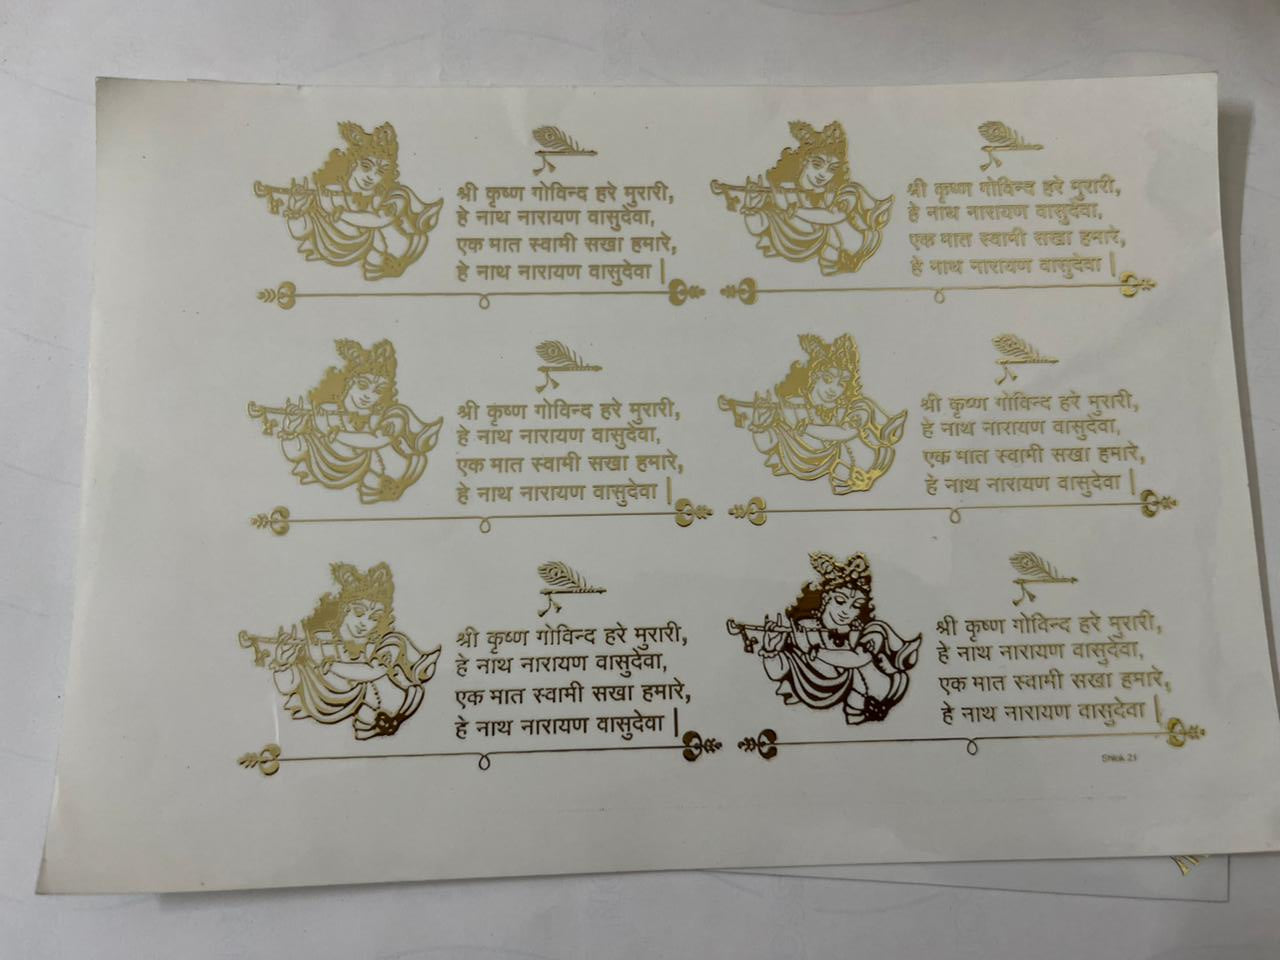 श्री कृष्ण गोविन्द हरे मुरारी,
हे नाथ नारायण वासुदेवा,
एक मात स्वामी सखा हमारे,
हे नाथ नारायण वासुदेवा |
श्री कृष्ण गोविन्द हरे मुरारी,
हे नाथ नारायण वासुदेवा,
एक मात स्वामी सखा हमारे,
हे नाथ नारायण वासुदेवा |
श्री कृष्ण गोविन्द हरे मुरारी,
हे नाथ नारायण वासुदेवा,
एक मात स्वामी सखा हमारे,
हे नाथ नारायण वासुदेवा |
श्री कृष्ण गोविन्द हरे मुरारी,
हे नाथ नारायण वासुदेवा,
एक मात स्वामी सखा हमारे,
हे नाथ नारायण वासुदेवा |
श्री कृष्ण गोविन्द हरे मुरारी,
हे नाथ नारायण वासुदेवा,
एक मात स्वामी सखा हमारे,
हे नाथ नारायण वासुदेवा |
श्री कृष्ण गोविन्द हरे मुरारी,
हे नाथ नारायण वासुदेवा,
एक मात स्वामी सखा हमारे,
हे नाथ नारायण वासुदेवा |
Shlok 21